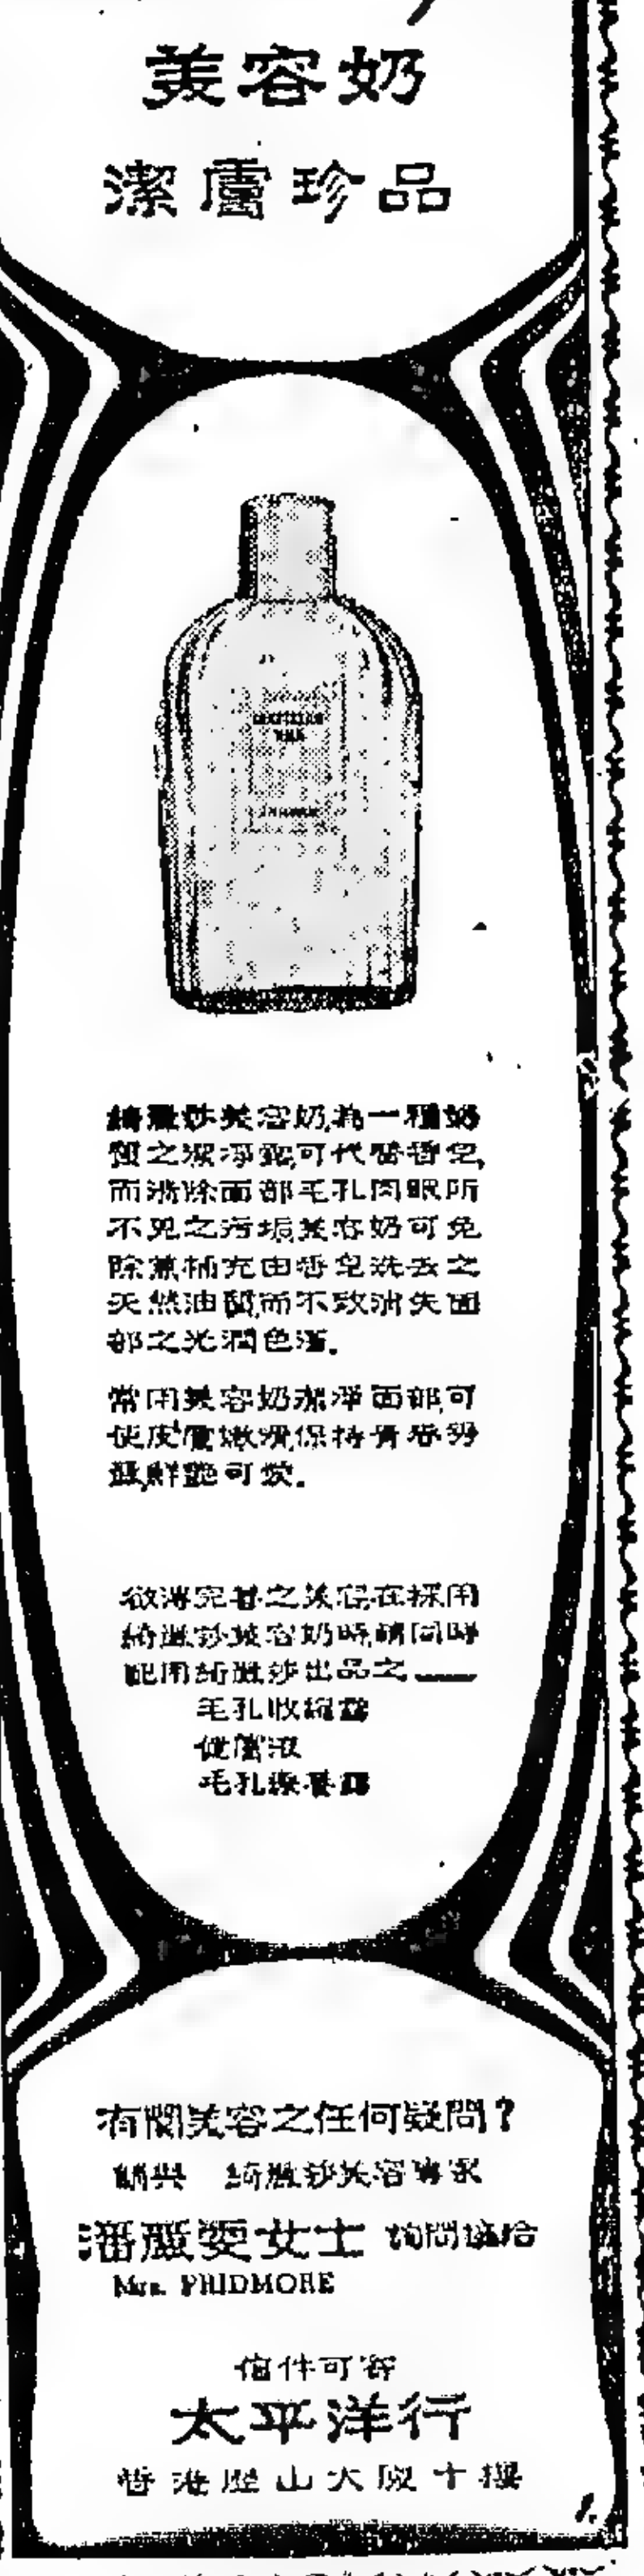 美容奶
潔膚珍品
綺麗莎美容奶,為一種奶
質之潔淨乳,可代替香皂,
而清除面部毛孔肉眼所
不見之污垢,美容奶可免
除兼補充由香皂洗去之
天然油質,而不致消失面
部之光潤色澤.
常用美容奶潔淨面部,可
使皮膚嫩滑,保持青春
鮮艷可愛.
欲得完善之美容,在採用
綺麗莎美容奶時,請同時
配用綺麗莎出品之——
毛孔收縮露
健膚液
毛孔
有關美容之任何疑問?
請與 綺麗莎美容專家
潘麗雯女士 詢問
Mrs. PRIDMORE
信件可寄
太平洋行
香港歷山大廈十樓